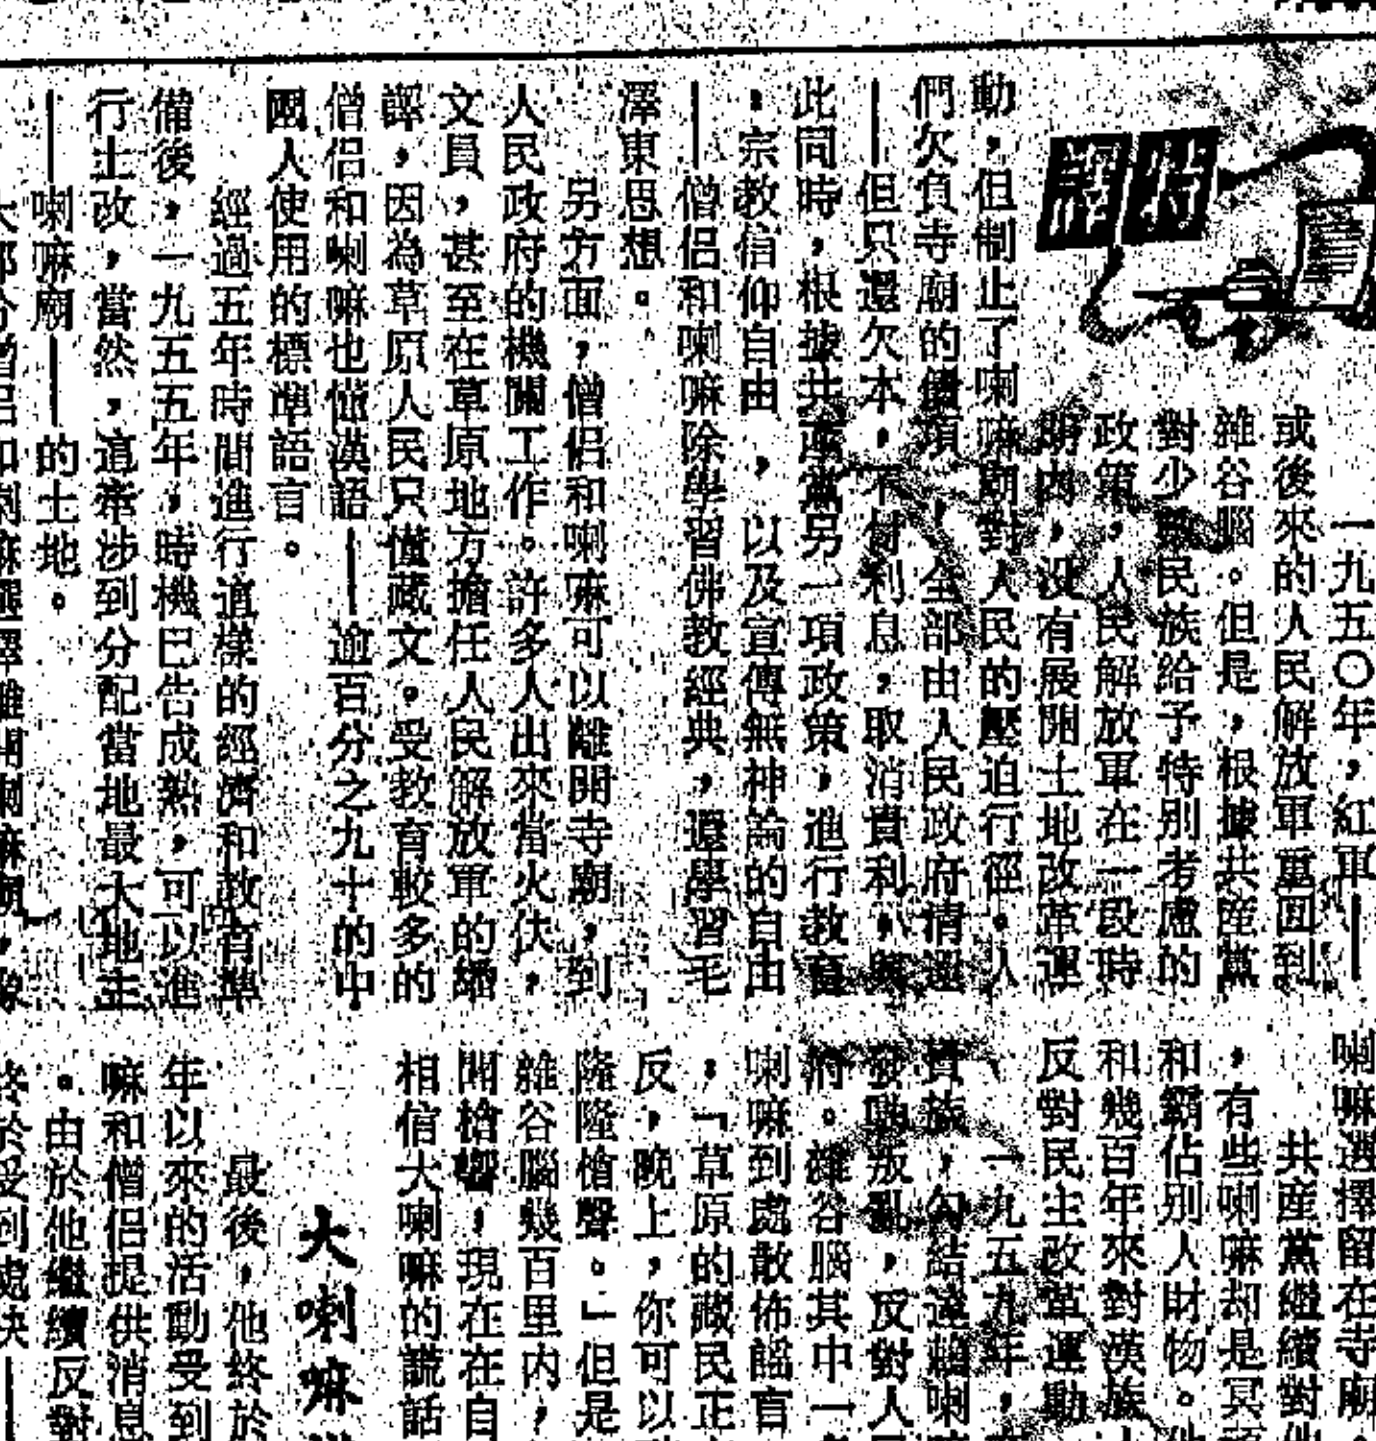 特譯
一九五〇年，紅軍——
或後來的人民解放軍重囬到
雜谷腦。但是，根據共産黨
對少數民族給予特别考慮的
政策，人民解放軍在一段時
期内，没有展開土地改革運
動，但制止了喇嘛廟對人民的壓迫行徑。人
們欠負寺廟的債項，全部由人民政府清還
——但只還欠本，不付利息，取消貴利。與
此同時，根據共産黨另一項政策，進行教育
，宗教信仰自由，以及宣傳無神論的自由
——僧侣和喇嘛除學習佛教經典，還學習毛
澤東思想。
另方面，僧侣和喇嘛可以離開寺廟，到
人民政府的機關工作。許多人出來當火伕，
文員，甚至在草原地方擔任人民解放軍的繙
譯，因為草原人民只懂藏文。受教育較多的
僧侣和喇嘛也懂漢語——逾百分之九十的中
國人使用的標準語言。
經過五年時間進行這樣的經濟和教育準
備後，一九五五年，時機已告成熟，可以進
行土改，當然，這牽涉到分配當地最大地主
——喇嘛廟——的土地。
大部分僧侣和喇嘛選擇離開喇嘛廟，
喇嘛選擇留在寺廟，
共産黨繼續對他
，有些喇嘛却是冥頑
和霸佔别人財物。他
和幾百年來對漢族
反對民主改革運動
一九五九年，
貴族，勾結達賴喇嘛
發動叛亂，反對人民
府。雜谷腦其中一
喇嘛到處散佈謡言
，「草原的藏民正
反，晚上，你可以
隆隆槍聲。」但是
雜谷腦幾百里内，
聞槍響，現在在自
相信大喇嘛的謊話
大喇嘛
最後，他終於
年以來的活動受到
嘛和僧侣提供消息
。由於他繼續反對
終於受到處决——